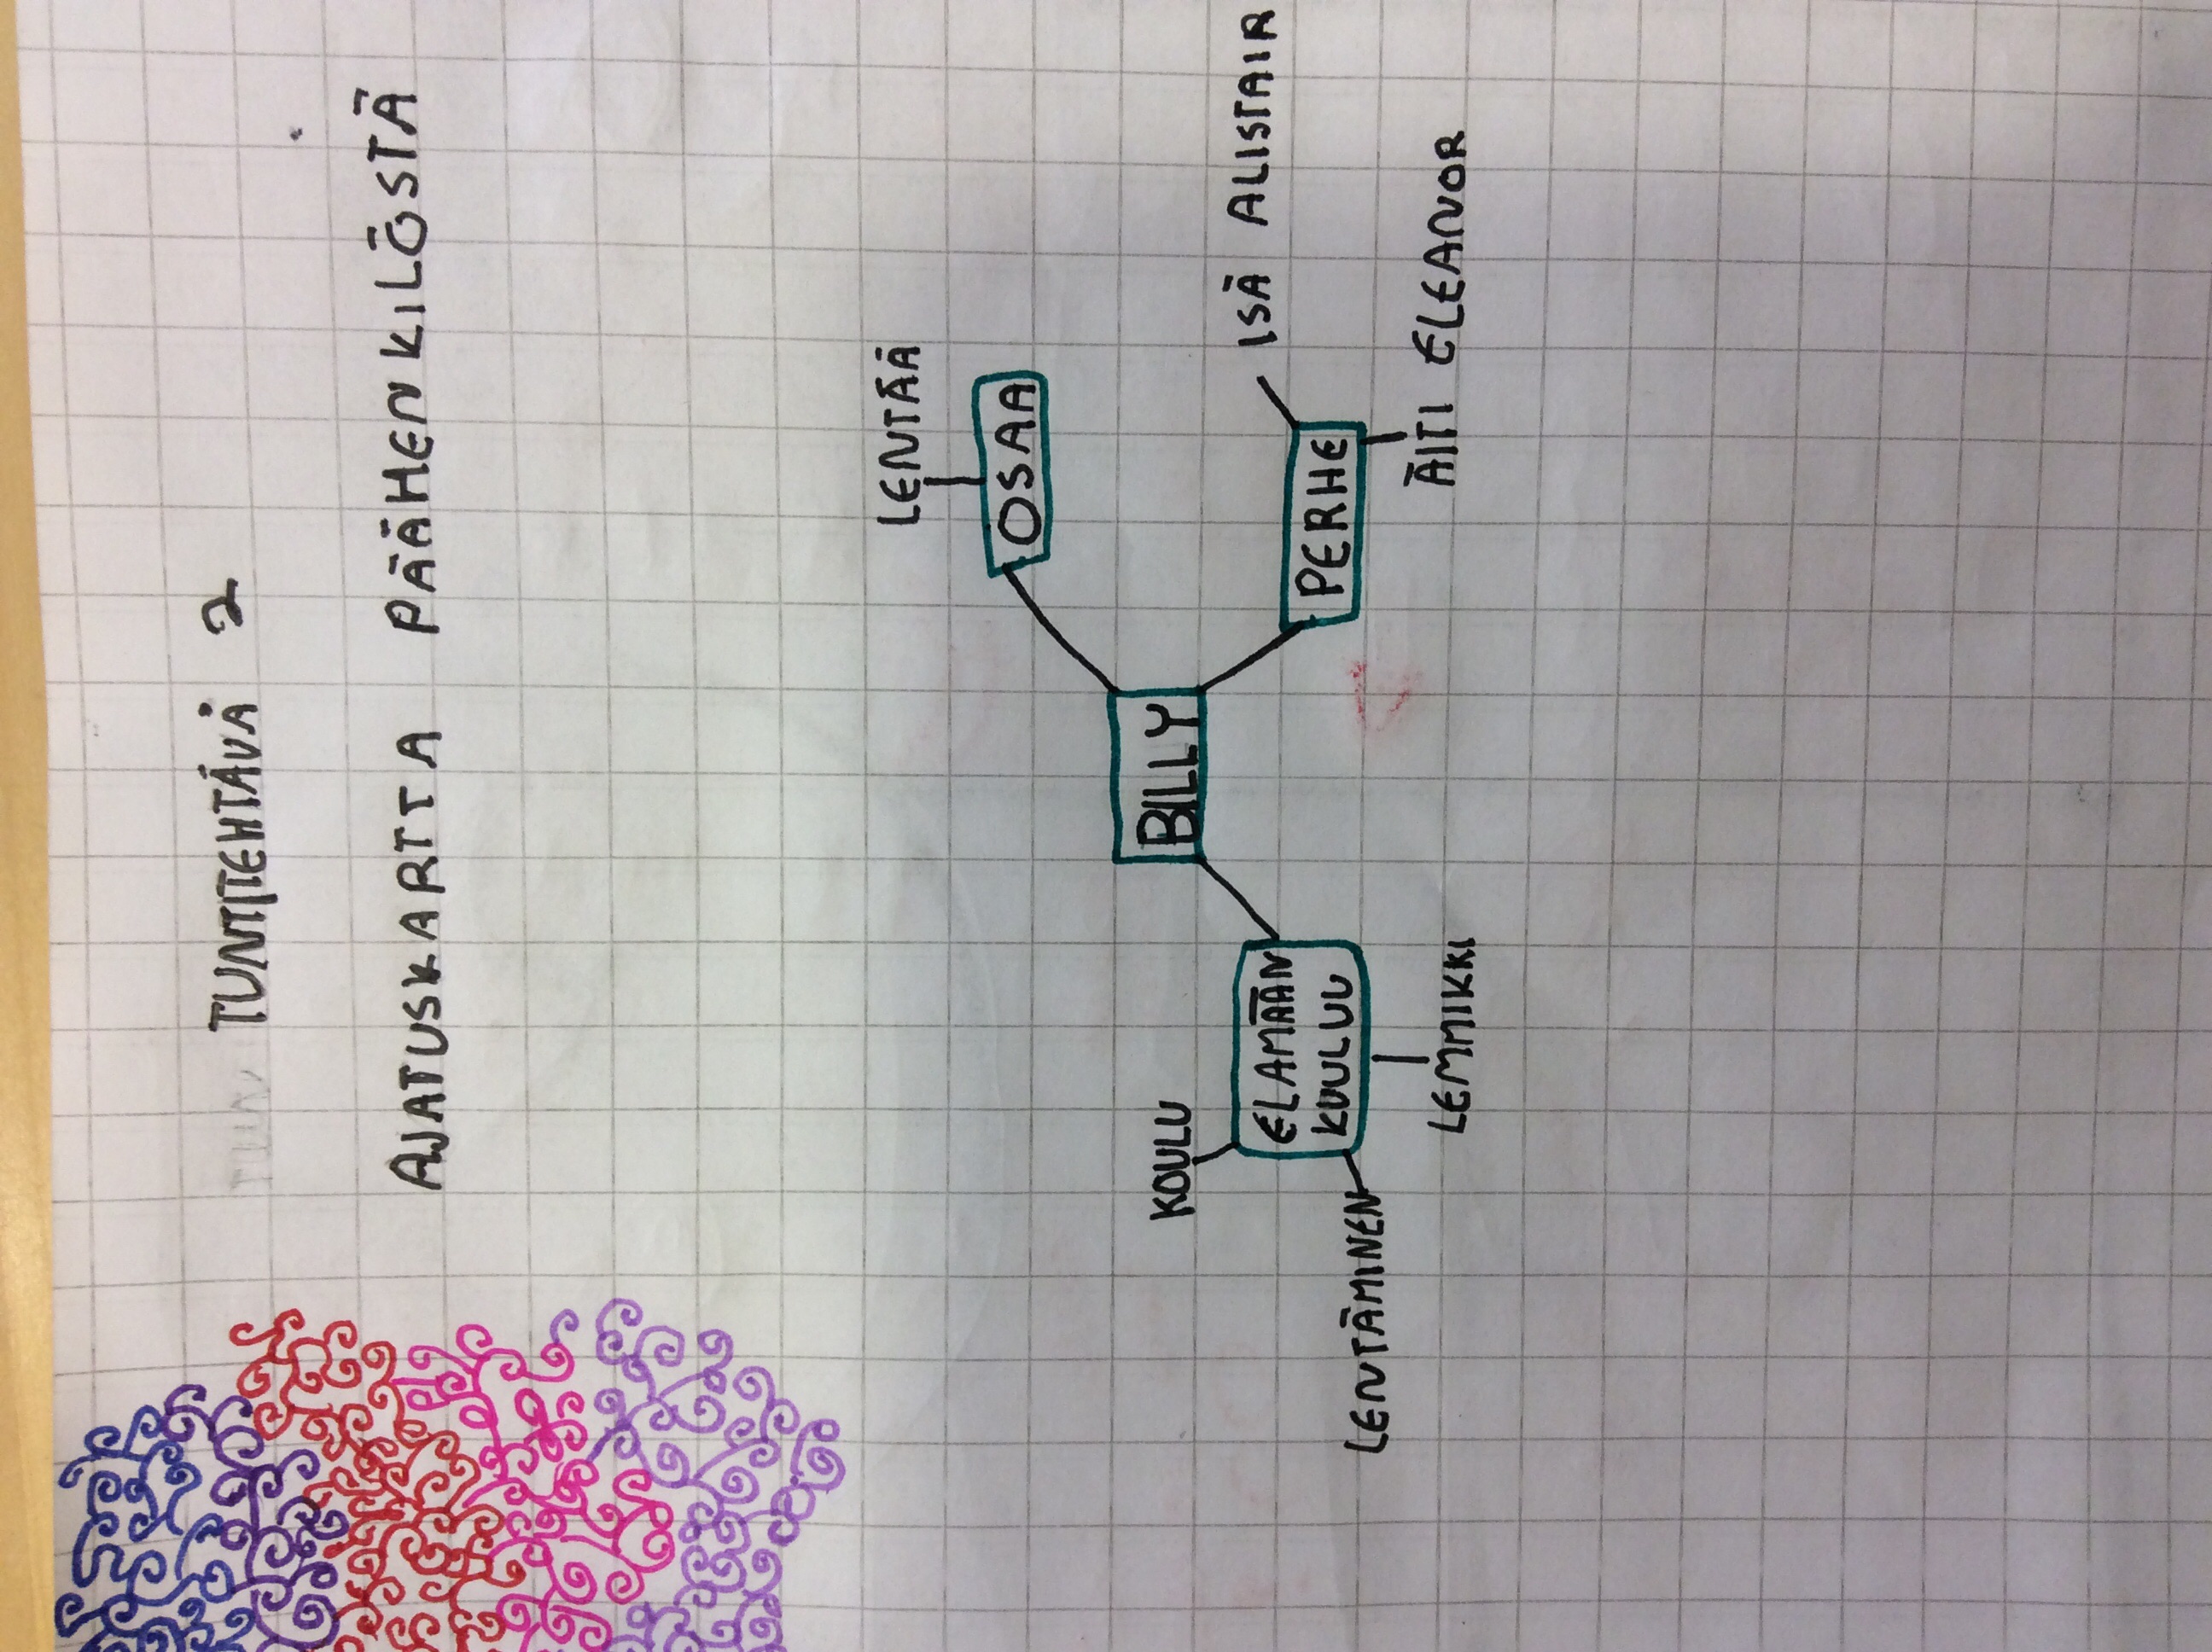 TUNTITEHTÄVÄ 2
AJATUSKARTTA PÄÄHENKILÖSTÄ
LENTÄÄ
OSAA
BILLY
ISÄ ALISTAIR
PERHE
ÄITI ELEANOR
KOULU
ELÄMÄÄN
KUULUU
LENTÄMINEN
LEMMIKKI